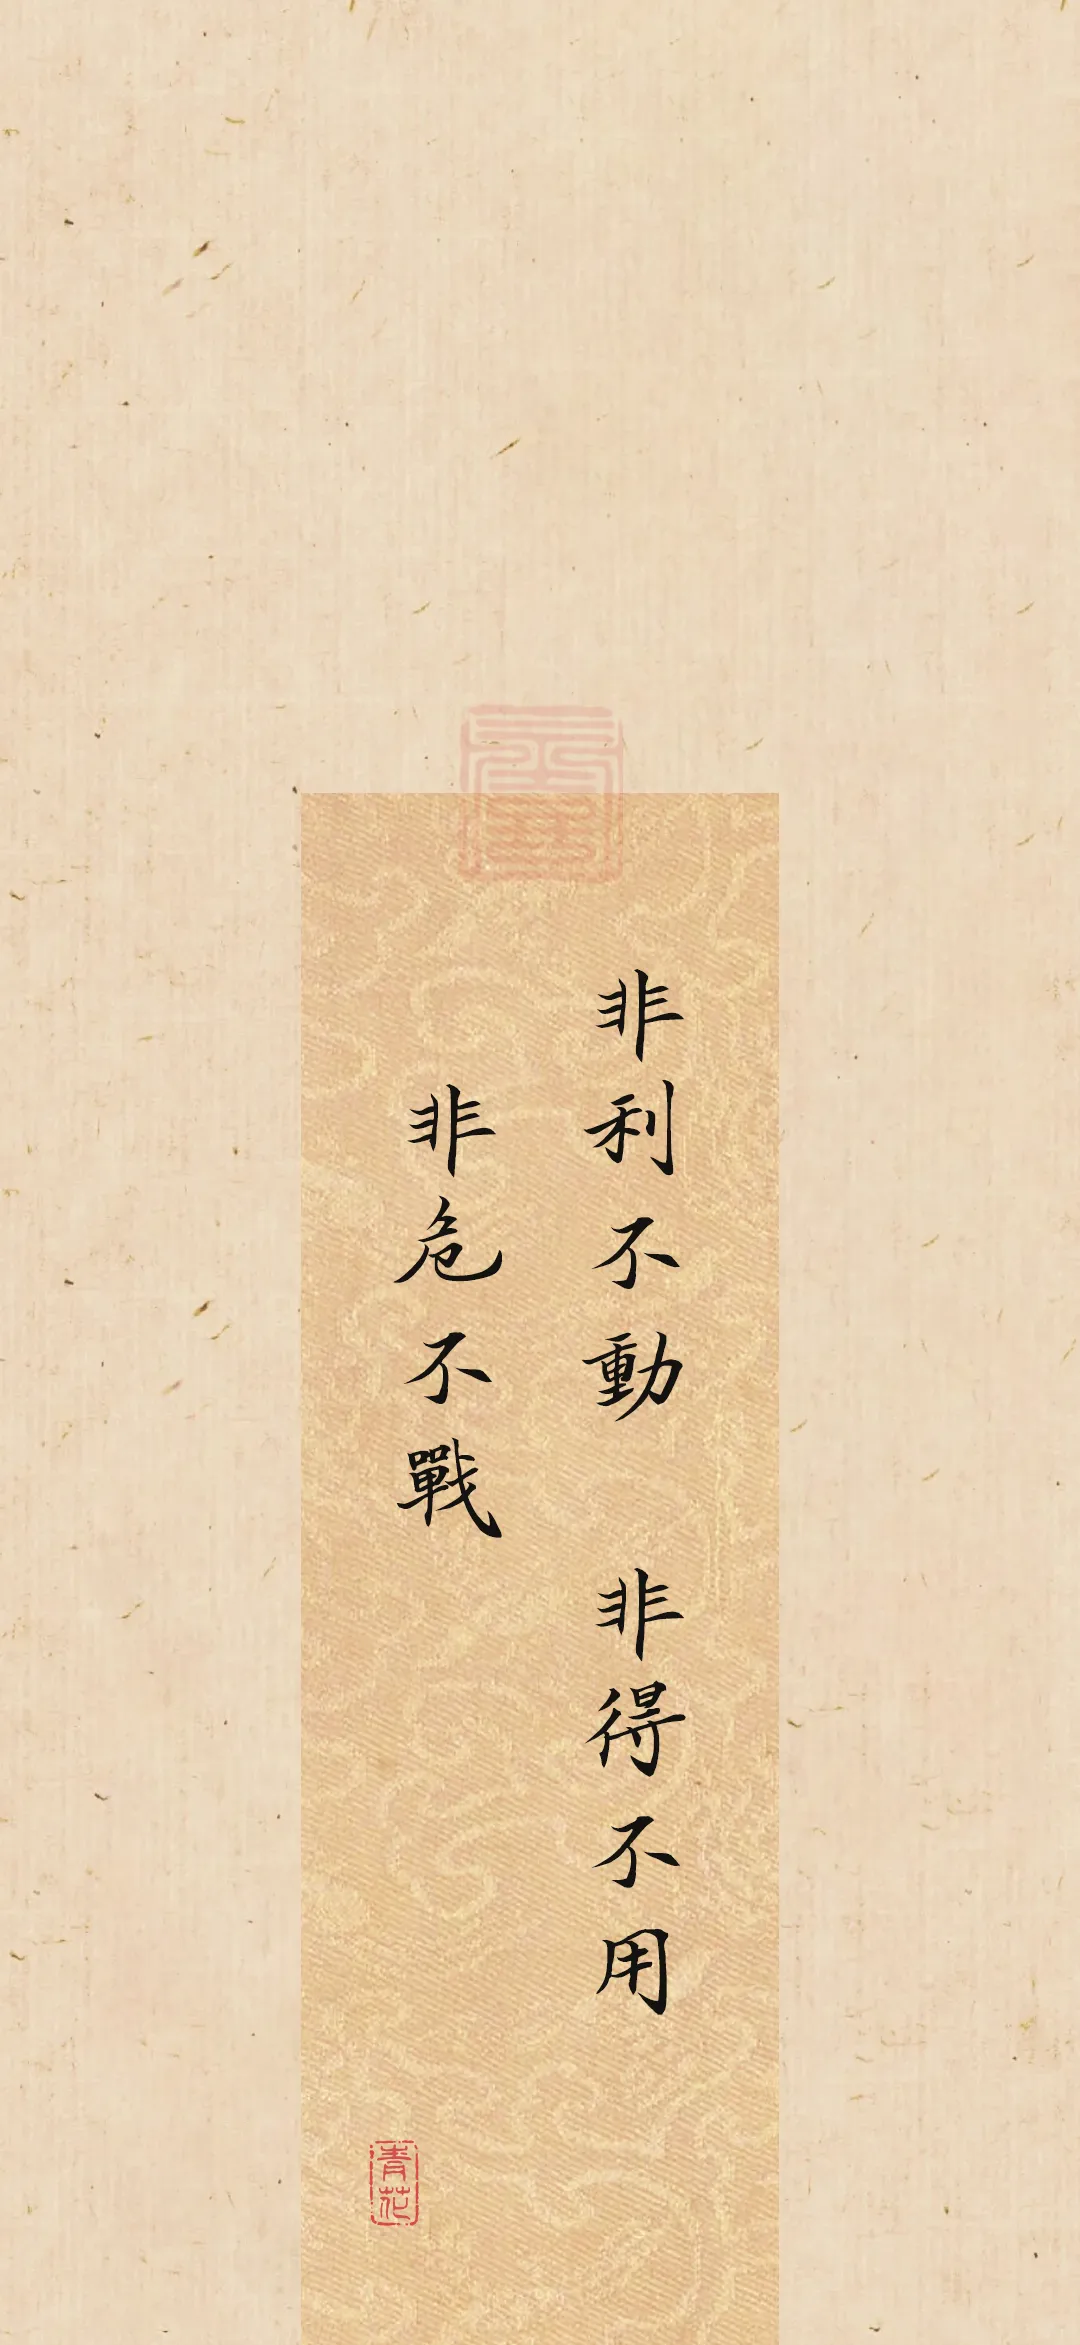 非利不動 非得不用
非危不戰
青花